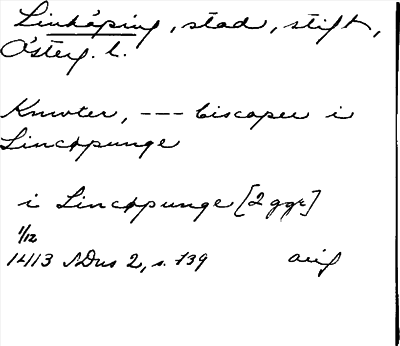 Linköping, stad, stift,
Österg. l.
Knwter, --- biscoper i
Lincøpunge
i Lincøpunge [2 ggr]
1/12
1413 SDns 2, s. 139 orig